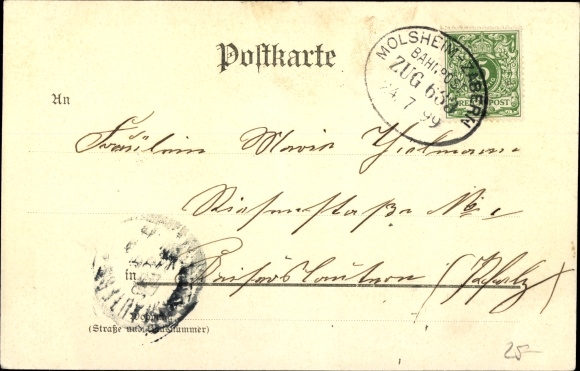 Postkarte
MOLSHEIM - ZABERN
BAHNPOST
ZUG 639
24. 7. 99
5
REICHSPOST
An
Fräulein Marie Thielmann
straße No. 1
in Kaiserslautern (Pfalz)
Wohnung
(Straße und Hausnummer)
25-